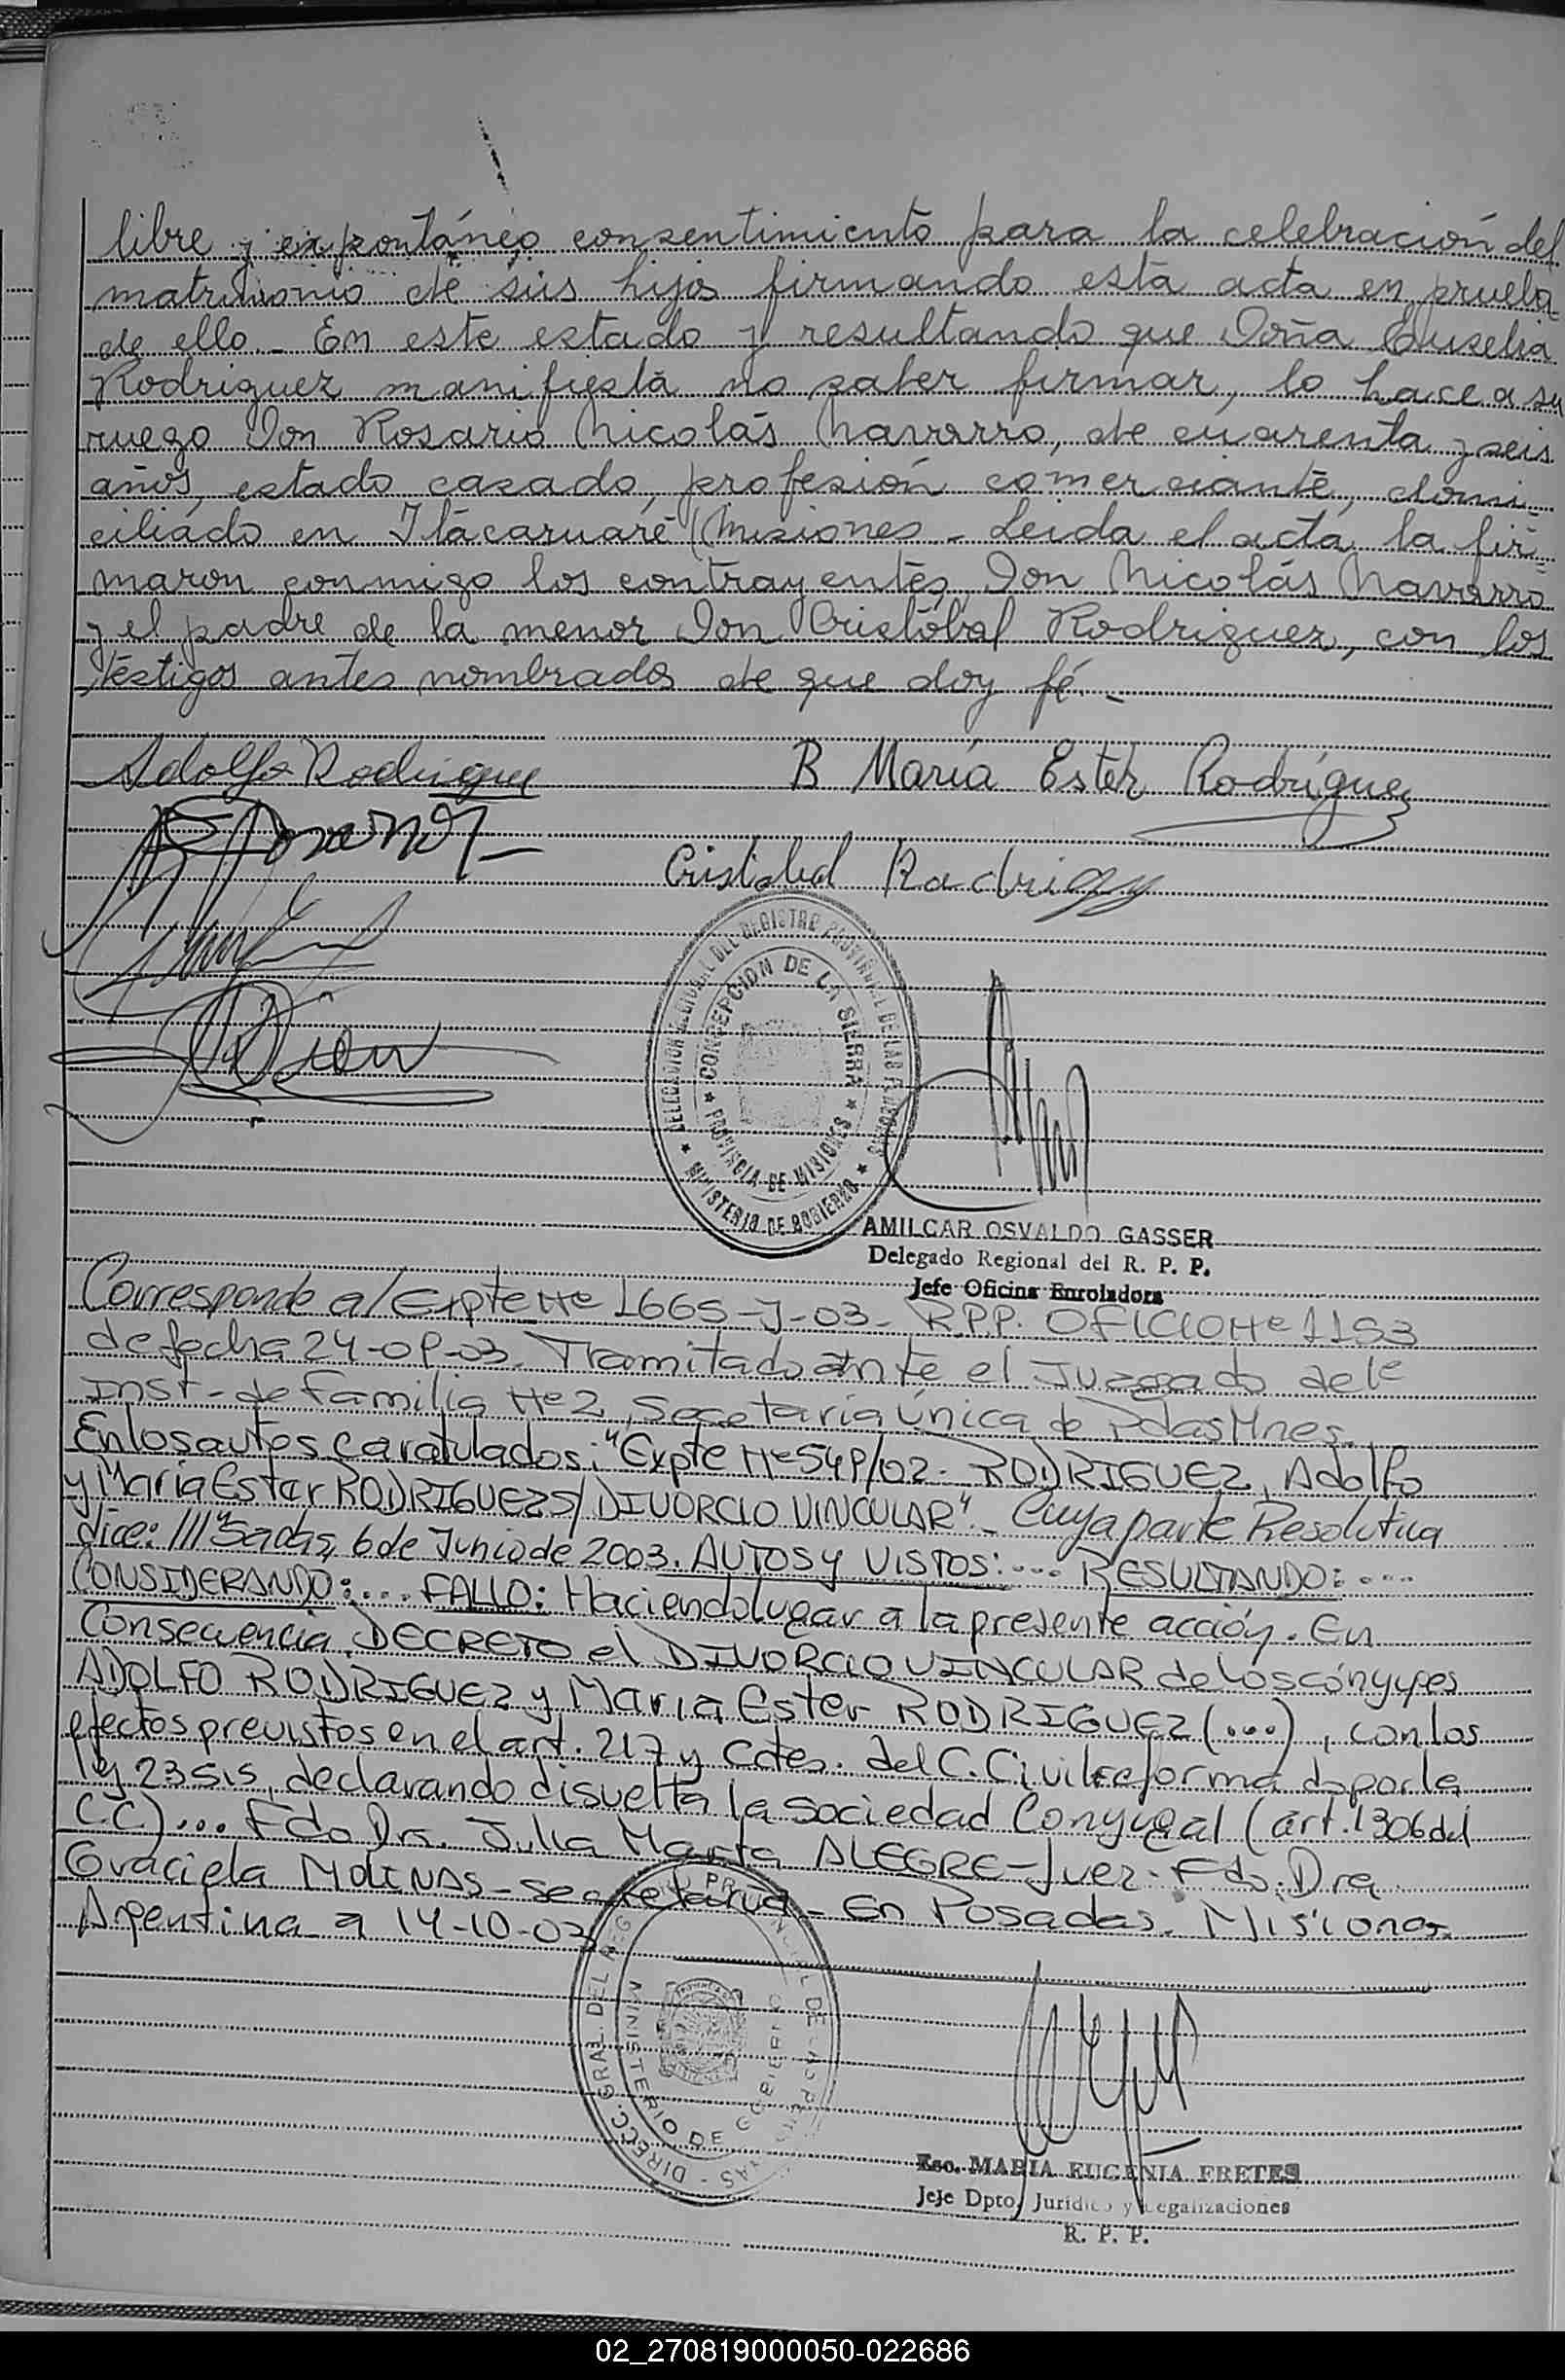 libre y expontáneo consentimiento para la celebración del
matrimonio de sus hijos firmando esta acta en prueba
de ello.- En este estado y resultando que Doña Euselia
Rodriguez manifiesta no saber firmar, lo hace a su
ruego Don Rosario Nicolás Navarro, de cuarenta y seis
años, estado casado, profesión comerciante, domi-
ciliado en Itacaruaré (Misiones - Leida el acta, la fir-
maron conmigo los contrayentes, Don Nicolás Navarro
y el padre de la menor Don Cristóbal Rodriguez, con los
testigos antes nombrados de que doy fé.-
Adolfo Rodrigue
B María Ester Rodríguez
Cristobal Rodriguez
DELEGACION REGIONAL DEL REGISTRO PROVINCIAL DE LAS PERSONAS
CONCEPCION DE LA SIERRA
PROVINCIA DE MISIONES
MINISTERIO DE GOBIERNO
AMILCAR OSVALDO GASSER
Delegado Regional del R. P. P.
Jefe Oficina Enroladora
Corresponde a/ Expte Nº 1665-J-03- R.P.P. OFICIO Nº 1153
de fecha 24-09-03. Tramitado ante el Juzgado de 1º
INST- de Familia Nº 2, Secetaría Única de Pdas Mnes.
En los autos caratulados: "Expte Nº 549/02- RODRIGUEZ, Adolfo
y María Ester RODRIGUEZ S/ DIVORCIO VINCULAR".- Cuya parte Resolutiva
dice: ///"sadas, 6 de Junio de 2003. AUTOS Y VISTOS:.... RESULTANDO:....
CONSIDERANDO:.... FALLO: Haciendo lugar a la presente acción. En
Consecuencia, DECRETO el DIVORCIO VINCULAR de los cónyuges
ADOLFO RODRIGUEZ y María Ester RODRIGUEZ (...), con los
efectos previstos en el art. 217 y Cctes. del C. Civil reformado por la
ley 23515, declarando disuelta la sociedad Conyugal (art. 1306 del
C.C)... Fdo Dra. Julia Marta ALEGRE-Juez- Fdo. Dra
Graciela MOLINAS-secretaria- En Posadas. Misiones.
Argentina a 14-10-03
DIRECC. GRAL. DEL REG PROVINCIAL DE LAS PERSONAS
MINISTERIO DE GOBIERNO
Esc. MARIA EUGENIA FRETES
Jeje Dpto. Jurídico y Legalizaciones
R. P. P.
02_270819000050-022686